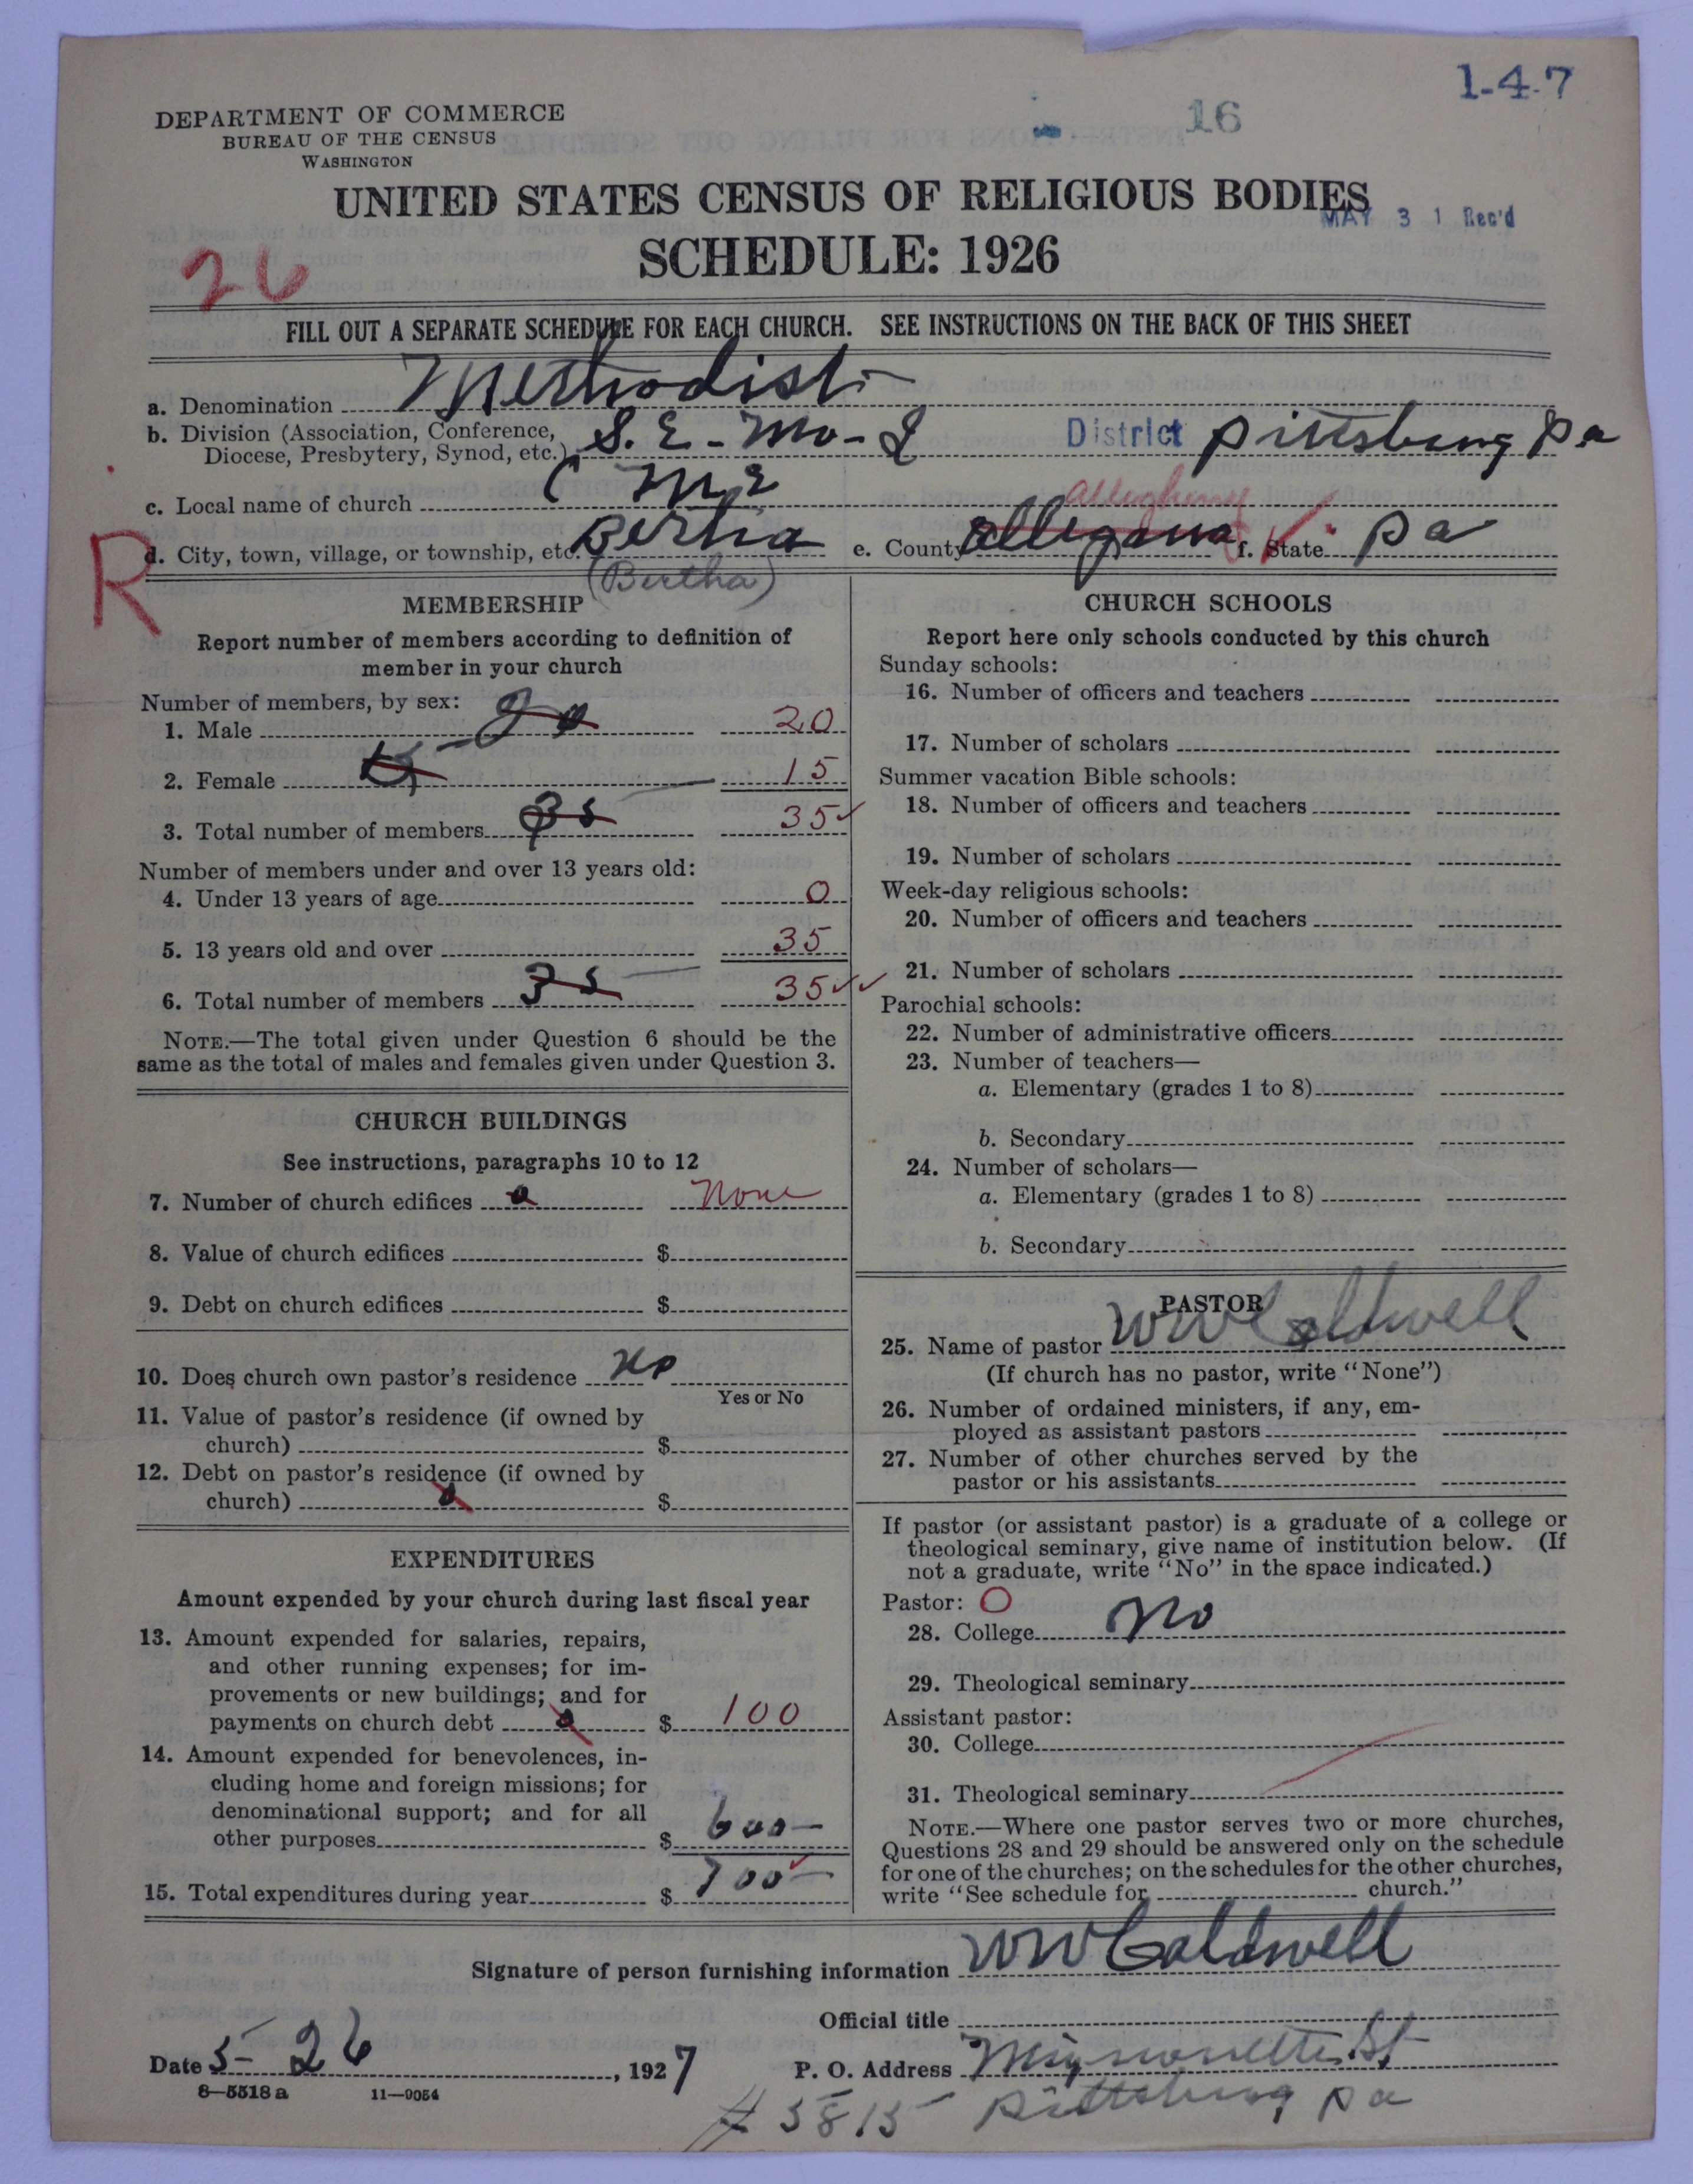 1-4-7
16
DEPARTMENT OF COMMERCE
BUREAU OF THE CENSUS
WASHINGTON
UNITED STATES CENSUS OF RELIGIOUS BODIES
MAY 31 Rec'd
SCHEDULE: 1926
26
FILL OUT A SEPARATE SCHEDULE FOR EACH CHURCH. SEE INSTRUCTIONS ON THE BACK OF THIS SHEET
a. Denomination Methodist
b. Division (Association, Conference, Diocese, Presbytery, Synod, etc.) S. E - Mo - District Pittsburg Pa
c. Local name of church C M E
Allegheny
R
d. City, town, village, or township, etc. Bertha e. County Allegana f. State Pa
(Bertha)
MEMBERSHIP
Report number of members according to definition of
member in your church
Number of members, by sex:
1. Male 20 20
2. Female 15 15
3. Total number of members 35 35
Number of members under and over 13 years old:
4. Under 13 years of age 0
5. 13 years old and over 35
6. Total number of members 35 35
NOTE.—The total given under Question 6 should be the
same as the total of males and females given under Question 3.
CHURCH BUILDINGS
See instructions, paragraphs 10 to 12
7. Number of church edifices 0 none
8. Value of church edifices $
9. Debt on church edifices $
10. Does church own pastor's residence no
Yes or No
11. Value of pastor's residence (if owned by
church) $
12. Debt on pastor's residence (if owned by
church) 0 $
EXPENDITURES
Amount expended by your church during last fiscal year
13. Amount expended for salaries, repairs,
and other running expenses; for im-
provements or new buildings; and for
payments on church debt 0 $ 100
14. Amount expended for benevolences, in-
cluding home and foreign missions; for
denominational support; and for all
other purposes $ 600—
15. Total expenditures during year $ 700—
CHURCH SCHOOLS
Report here only schools conducted by this church
Sunday schools:
16. Number of officers and teachers
17. Number of scholars
Summer vacation Bible schools:
18. Number of officers and teachers
19. Number of scholars
Week-day religious schools:
20. Number of officers and teachers
21. Number of scholars
Parochial schools:
22. Number of administrative officers
23. Number of teachers—
a. Elementary (grades 1 to 8)
b. Secondary
24. Number of scholars—
a. Elementary (grades 1 to 8)
b. Secondary
PASTOR
25. Name of pastor W W Caldwell
(If church has no pastor, write "None")
26. Number of ordained ministers, if any, em-
ployed as assistant pastors
27. Number of other churches served by the
pastor or his assistants
If pastor (or assistant pastor) is a graduate of a college or
theological seminary, give name of institution below. (If
not a graduate, write "No" in the space indicated.)
Pastor: O
28. College No
29. Theological seminary
Assistant pastor:
30. College
31. Theological seminary
NOTE.—Where one pastor serves two or more churches,
Questions 28 and 29 should be answered only on the schedule
for one of the churches; on the schedules for the other churches,
write "See schedule for church."
Signature of person furnishing information W W Caldwell
Official title
Date 5-26, 1927 P. O. Address Mignonette St
8—5518 a 11—0054
# 5815 Pittsburg Pa